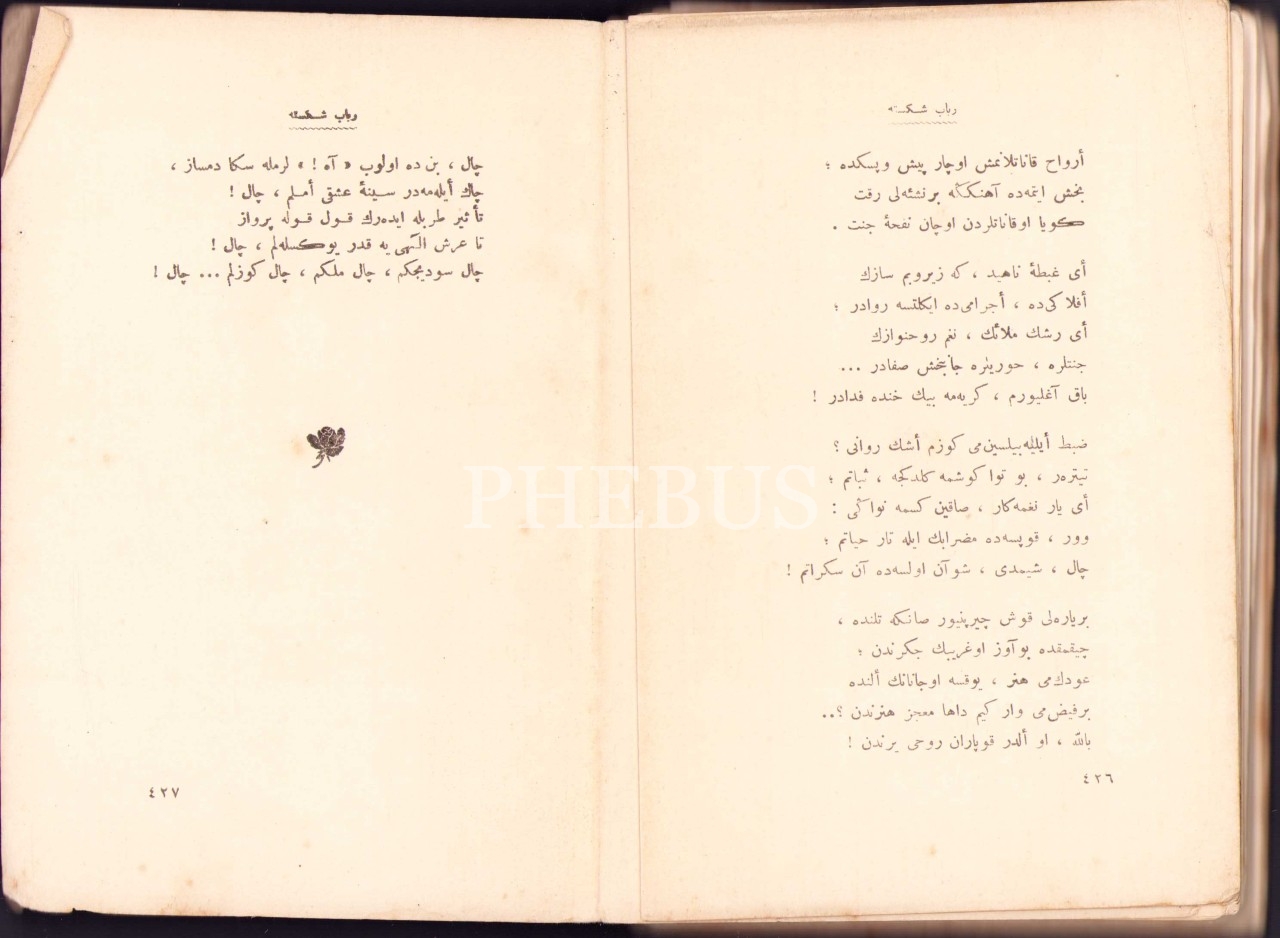 رباب شكسته
أرواح قاناتلانمش اوچار پيش وپسكده ؛
بخش ايتمه‌ده آهنككه برنشئه‌لى رقت
كويا اوقاناتلردن اوچان نفحۀ جنت .
أى غبطۀ ناهيد ، كه زيروبم سازك
أفلاكى‌ده ، أجرامى‌ده ايكلتسه روادر ؛
أى رشك ملائك ، نغم روحنوازك
جنتلره ، حوريلره جانبخش صفادر ...
باق آغليورم ، كريه‌مه بيك خنده فدادر !
ضبط أيليه‌بيلسين‌مى كوزم أشك روانى ؟
تيتره‌ر ، بو نوا كوشمه كلدكجه ، ثباتم ؛
أى يار نغمه‌كار ، صاقين كسمه نواكى :
وور ، قوپسه‌ده مضرابك ايله تار حياتم ؛
چال ، شيمدى ، شوآن اولسه‌ده آن سكراتم !
برياره‌لى قوش چيرپنيور صانكه تلنده ،
چيقمقده بوآوز اوغريبك جكرندن ؛
عودك‌مى هنر ، يوقسه اوجانانك ألنده
برفيض‌مى وار كيم داها معجز هنرندن ؟..
بالله ، او ألدر قوپاران روحى يرندن !
٤٢٦
رباب شكسته
چال ، بن ده اولوب « آه ! » لرمله سكا دمساز ،
چاك أيله‌مه‌در سينۀ عشقى أملم ، چال !
تأثير طربله ايده‌رك قول قوله پرواز
تا عرش الٓهى يه قدر يوكسله‌لم ، چال !
چال سوديجكم ، چال ملكم ، چال كوزلم ... چال !
٤٢٧
PHEBUS